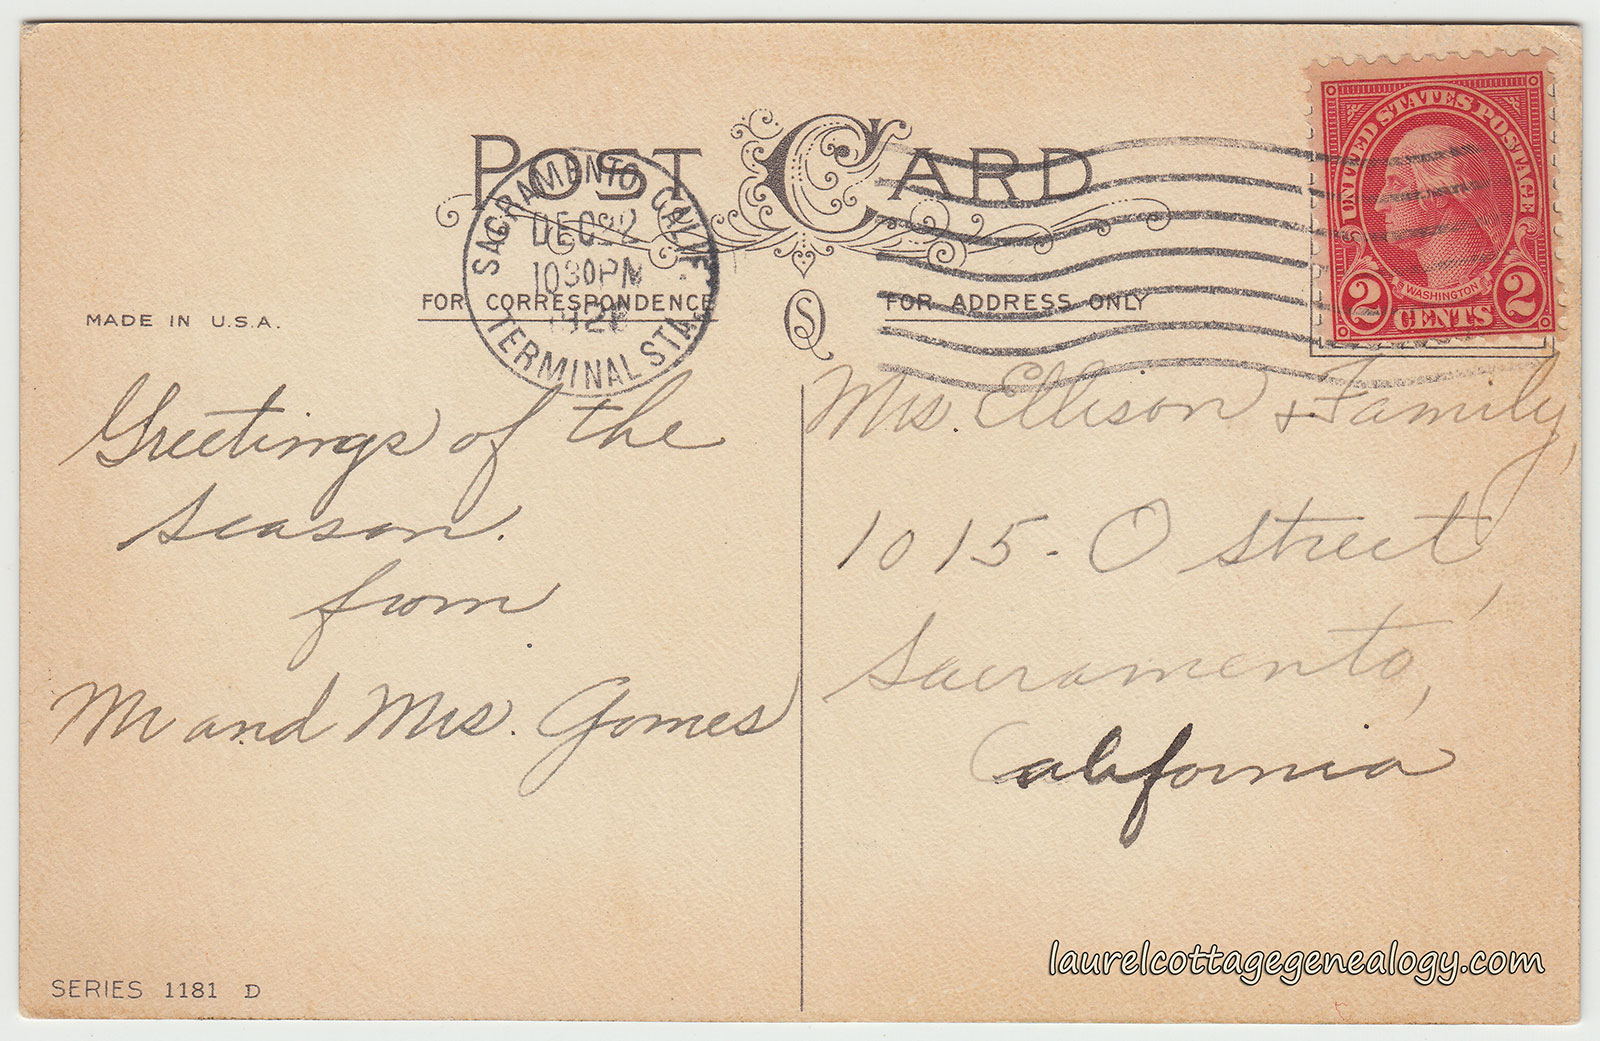 POST CARD
SACRAMENTO CALIF.
DEC 22
1030PM
TERMINAL STA.
UNITED STATES POSTAGE
WASHINGTON
2 CENTS 2
MADE IN U.S.A.
FOR CORRESPONDENCE
FOR ADDRESS ONLY
Greetings of the
season.
from
Mr and Mrs. Gomes
Mrs. Ellison & Family,
1015 - O Street,
Sacramento,
California
SERIES 1181 D
laurelcottagegenealogy.com